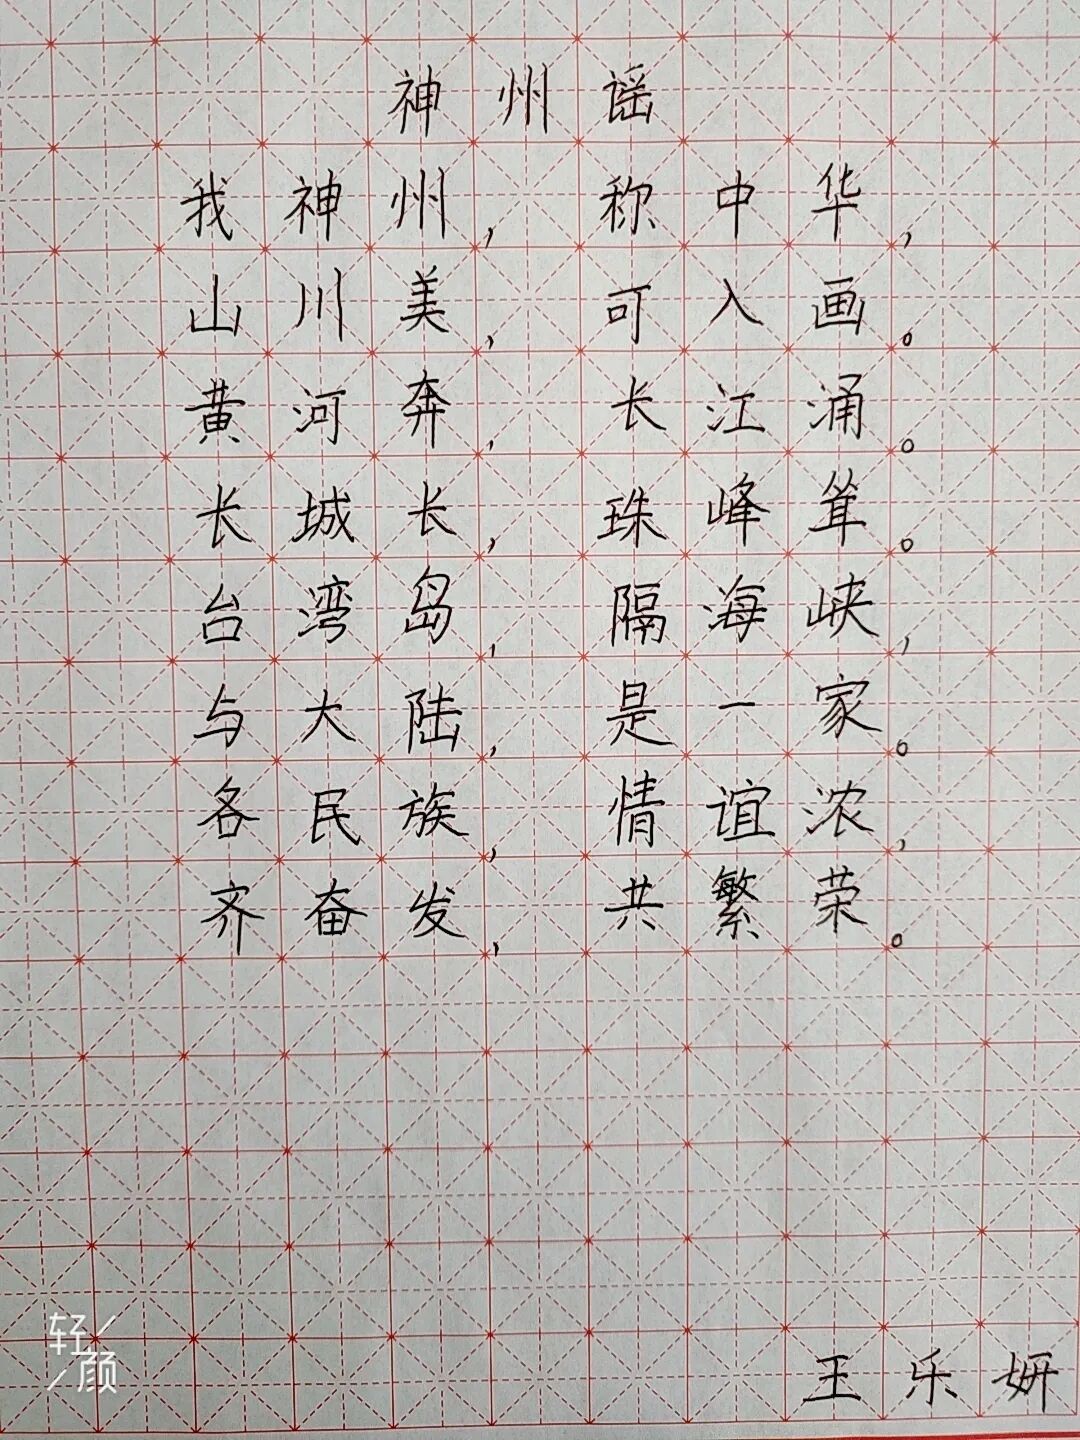 神州谣
我神州，称中华，
山川美，可入画。
黄河奔，长江涌。
长城长，珠峰耸。
台湾岛，隔海峡，
与大陆，是一家。
各民族，情谊浓，
齐奋发，共繁荣。
轻颜
王乐妍